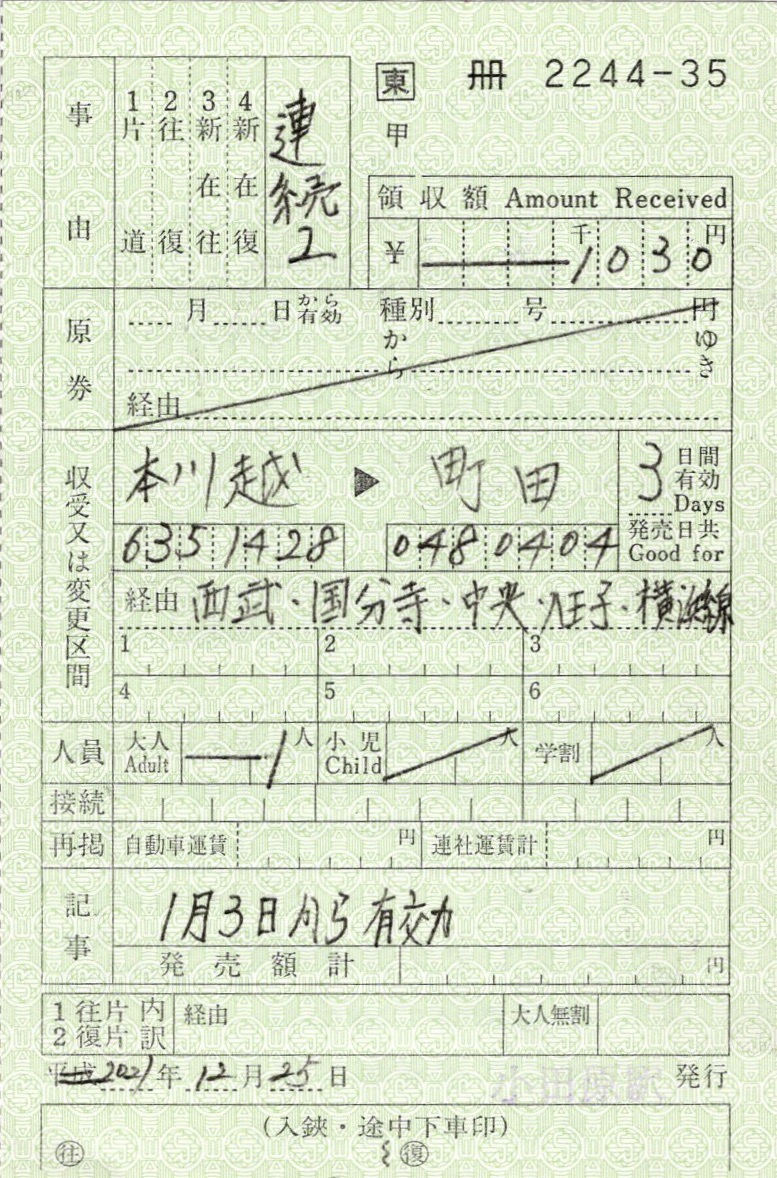 東 冊 2244-35
甲
事由
1片道
2往復
3新在往
4新在復
連続2
領収額 Amount Received
¥ 千1030円
原券
月 日から有効 種別 号 円
から ゆき
経由
収受又は変更区間
本川越 ▶ 町田
3日間有効
Days
発売日共
Good for
6351428 0480404
経由 西武・国分寺・中央・八王子・横浜線
1 2 3
4 5 6
人員 大人 Adult 1人 小児 Child 人 学割 人
接続
再掲 自動車運賃 円 連社運賃計 円
記事
1月3日から有効
発売額計 円
1往片内
2復片訳
経由 大人無割
平成 2021年 12月 25日 発行
小田原駅
(入鋏・途中下車印)
往 復